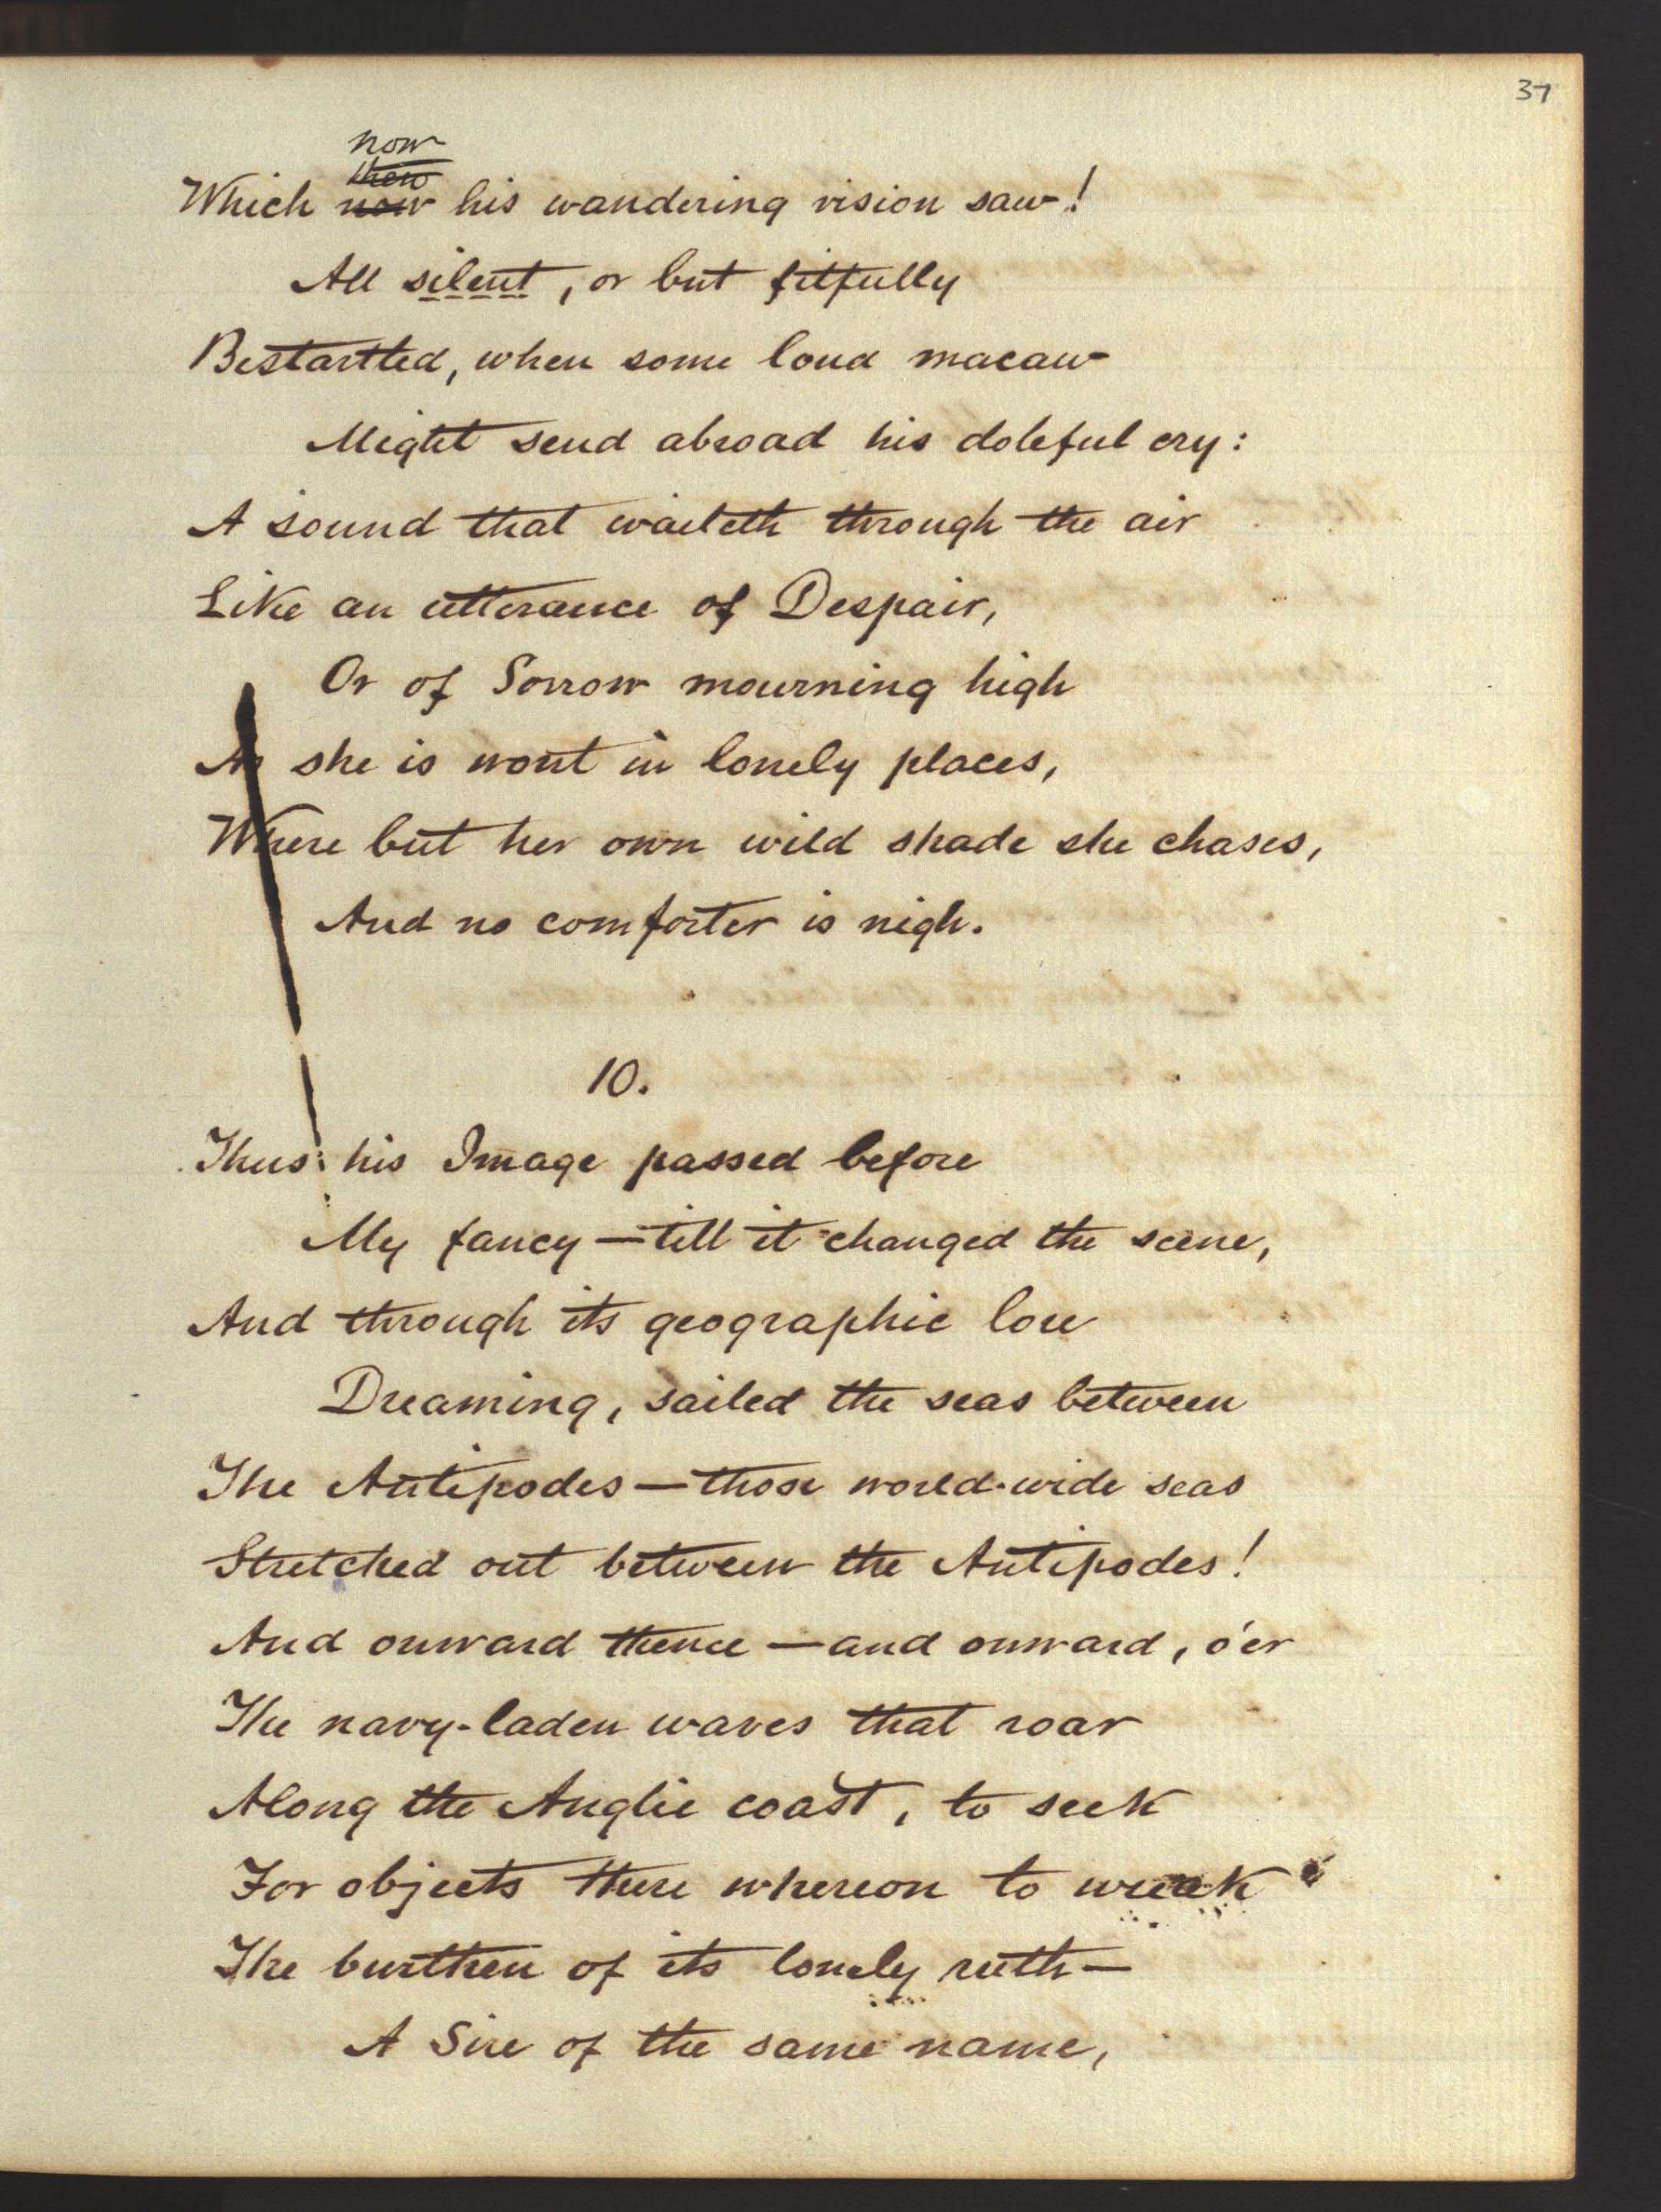 37
now
then
Which now his wandering vision saw!
All silent, or but fitfully
Bestartled, when some loud macaw
Might send abroad his doleful cry:
A sound that waileth through the air
Like an utterance of Despair,
Or of Sorrow mourning high
As she is wont in lonely places,
Where but her own wild shade she chases,
And no comforter is nigh.
10.
Thus his Image passed before
My fancy—till it changed the scene,
And through its geographic lore
Dreaming, sailed the seas between
The Antipodes—those world-wide seas
Stretched out between the Antipodes!
And onward thence—and onward, o'er
The navy-laden waves that roar
Along the Anglic coast, to seek
For objects there whereon to wreak
The burthen of its lonely ruth—
A Sire of the same name,